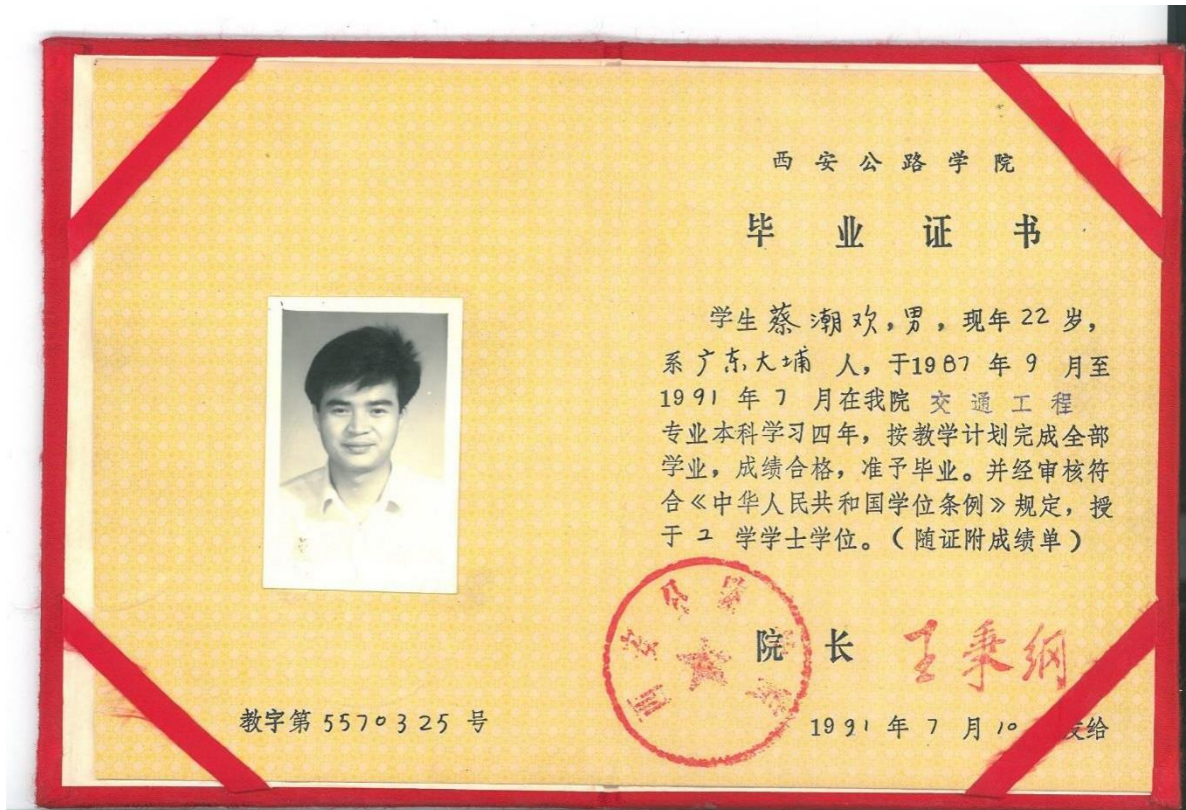 西安公路学院
毕业证书
学生蔡潮欢,男,现年22岁,
系广东大埔人,于1987年9月至
1991年7月在我院交通工程
专业本科学习四年,按教学计划完成全部
学业,成绩合格,准予毕业。并经审核符
合《中华人民共和国学位条例》规定,授
于工学学士学位。(随证附成绩单)
院长 王秉纲
1991年7月10 发给
教字第5570325号